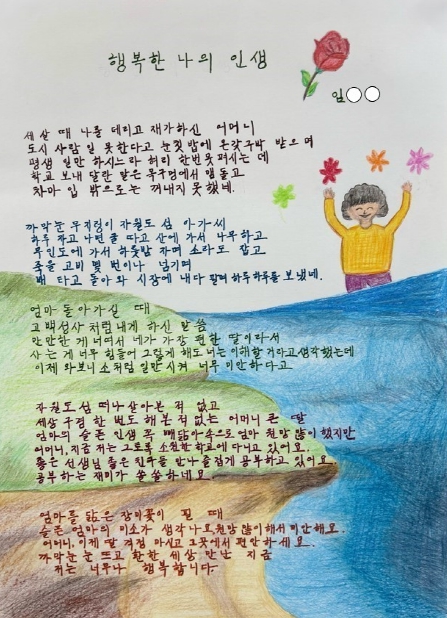 행복한 나의 인생
임○○
세 살 때 나를 데리고 재가하신 어머니
도시 사람 일 못한다고 눈칫밥에 온갖 구박 받으며
평생 일만 하시느라 허리 한번 못 펴시는 데
학교 보내 달란 말은 목구멍에서 맴돌고
차마 입 밖으로는 꺼내지 못했네.
까막눈 무지렁이 자월도 섬 아가씨
하루 자고 나면 굴 따고 산에 가서 나무하고
무인도에 가서 하룻밤 자며 소라도 잡고
죽을 고비 몇 번이나 넘기며
배 타고 돌아와 시장에 내다 팔며 하루하루를 보냈네.
엄마 돌아가실 때
고백성사처럼 내게 하신 말씀
만만한 게 너여서 네가 가장 편한 딸이라서
사는 게 너무 힘들어 그렇게 해도 너는 이해할 거라고 생각했는데
이제 와보니 소처럼 일만 시켜 너무 미안하다고
자월도 섬 떠나 살아본 적 없고
세상 구경 한 번도 해본 적 없는 어머니 큰 딸
엄마의 슬픈 인생 꼭 빼닮아 속으로 엄마 원망 많이 했지만
어머니, 지금 저는 그토록 소원한 학교에 다니고 있어요.
좋은 선생님 좋은 친구들 만나 즐겁게 공부하고 있어요.
공부하는 재미가 쏠쏠하네요.
엄마를 닮은 장미꽃이 필 때
슬픈 엄마의 미소가 생각나요 원망 많이 해서 미안해요.
어머니, 이제 딸 걱정 마시고 그곳에서 편안하세요.
까막눈 눈 뜨고 환한 세상 만난 지금
저는 너무나 행복합니다.